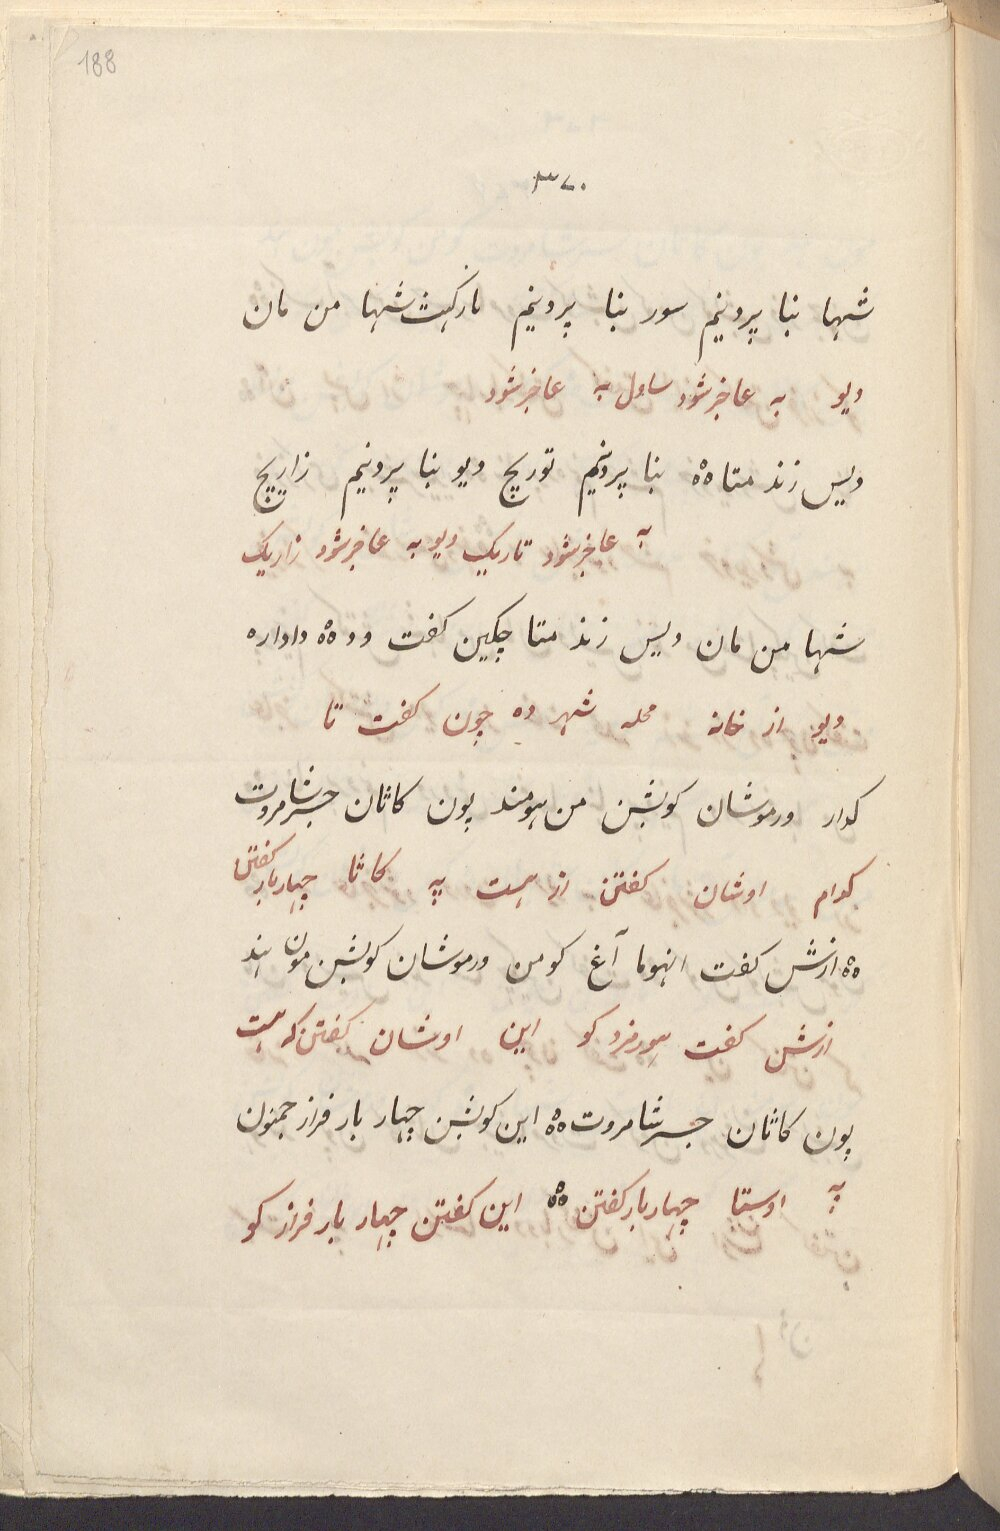 188
۳۷۰
شہا بنا پردنیم سور بنا پردنیم نارکہث شہا من مان
دیو به عاخر شود ساول به عاخر شود
ویس زند متا ۀ بنا پردنیم توریچ دیو بنا پردنیم زاریچ
به عاخر شود تاریک دیو به عاخر شود زاریک
شہا من مان ویس زند متا چکین کفت ود ۀ داداره
دیو از خانه محله شہر ده چون کفت تا
کدار ورموشان کوبشن من ہومند پون کاثان جسرشامروت
کدام اوشان کفتن از ہست په کاثا چہار بار کفتن
ازش کفت انہوما آغ کو من ورموشان کوبشن مون اند
ازش کفت ہورمزد کو این اوشان کفتن که ہست
پون کاثان جسرشامروت این کوبشن چہار بار فراز جمنون
په اوستا چہار بار کفتن این کفتن چہار بار فراز کو